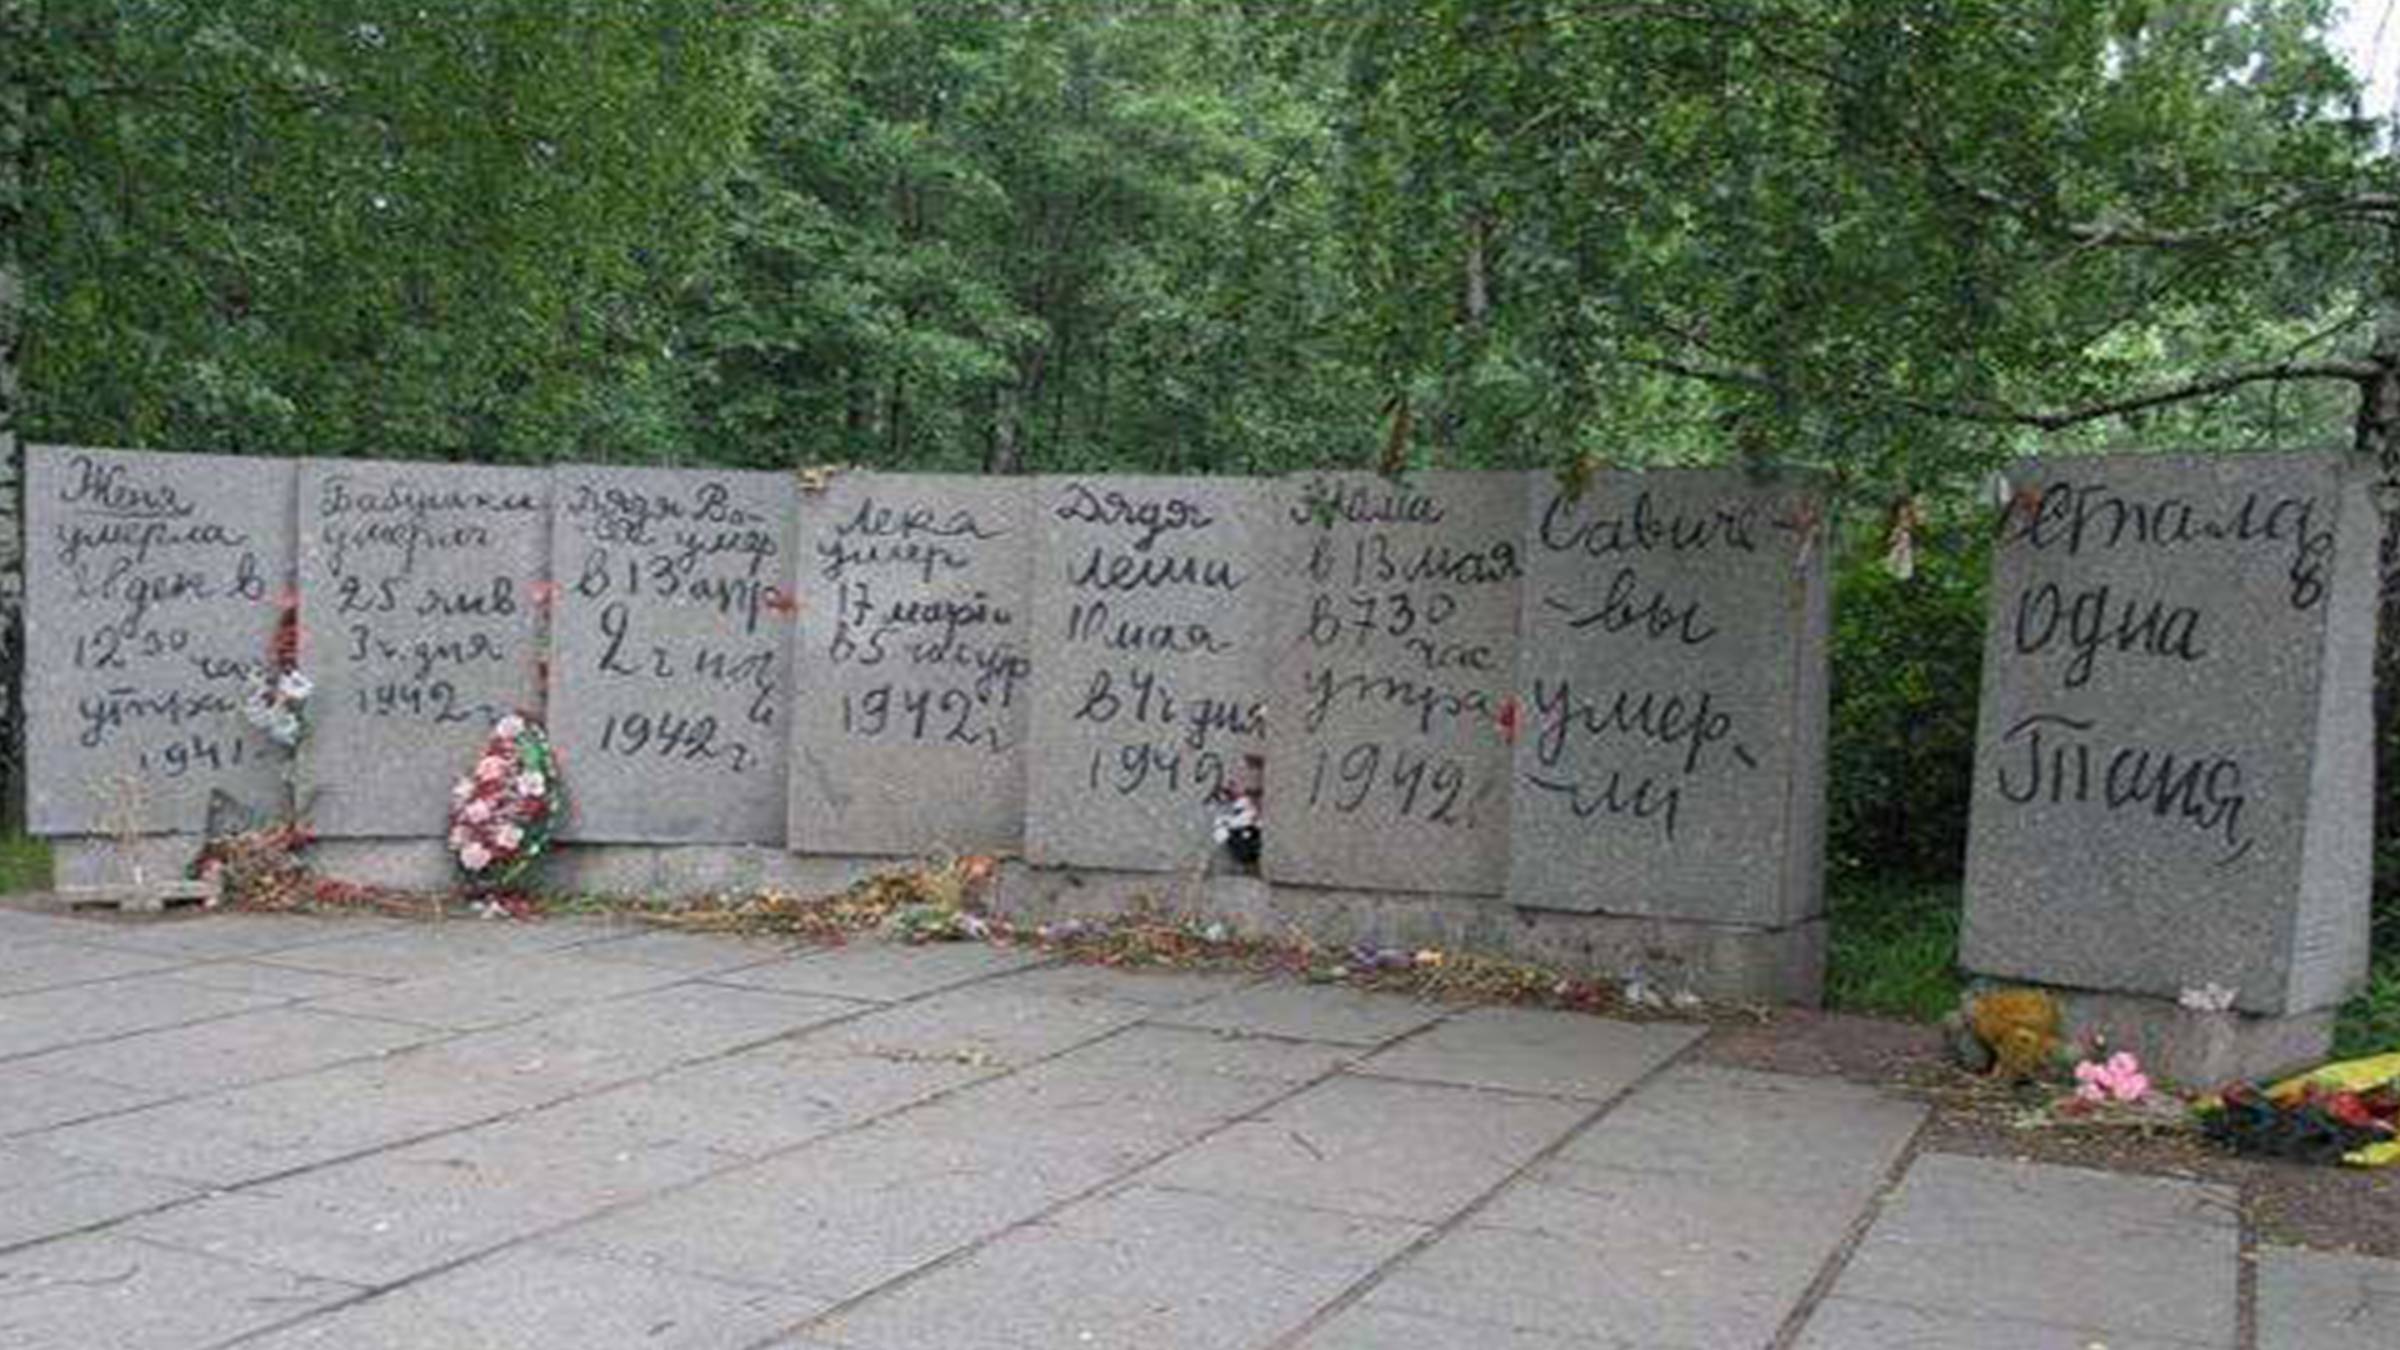 Женя
умерла
28 дек в
12 30 час
утра
1941
Бабушка
умерла
25 янв
3 ч. дня
1942 г
Дядя Ва-
ся умер
в 13 апр
2 ч ноч
ь
1942 г.
Лека
умер
17 марта
в 5 час утр
1942 г
Дядя
Леша
10 мая
в 4 ч дня
1942
Мама
в 13 мая
в 7 30
час
утра
1942 г
Савиче-
-вы
умер
-ли
Осталась
одна
Таня